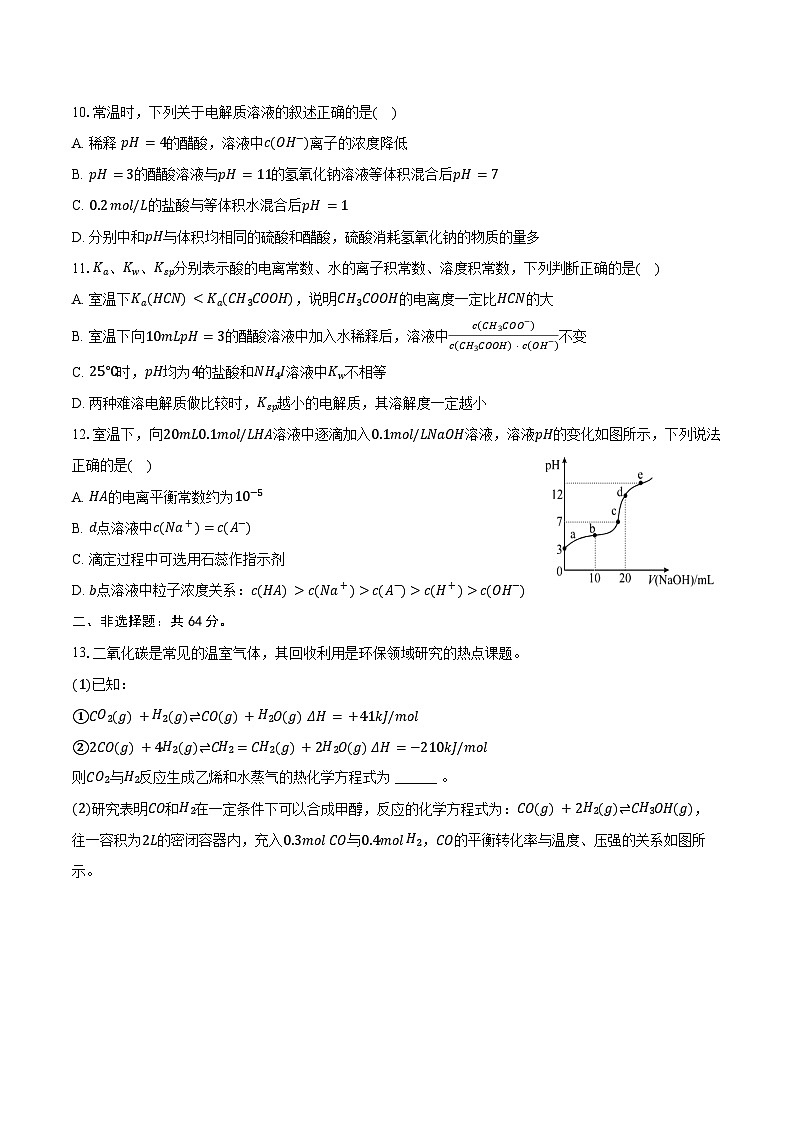 10. 常温时，下列关于电解质溶液的叙述正确的是(    )
A. 稀释 pH = 4的醋酸，溶液中c(OH⁻)离子的浓度降低
B. pH = 3的醋酸溶液与pH = 11的氢氧化钠溶液等体积混合后pH = 7
C. 0.2mol/L的盐酸与等体积水混合后pH = 1
D. 分别中和pH与体积均相同的硫酸和醋酸，硫酸消耗氢氧化钠的物质的量多
11. Kₐ、K_w、K_sp分别表示酸的电离常数、水的离子积常数、溶度积常数，下列判断正确的是(    )
A. 室温下Kₐ(HCN) < Kₐ(CH₃COOH)，说明CH₃COOH的电离度一定比HCN的大
B. 室温下向10mLpH = 3的醋酸溶液中加入水稀释后，溶液中c(CH₃COO⁻)/c(CH₃COOH)·c(OH⁻)不变
C. 25℃时，pH均为4的盐酸和NH₄I溶液中K_w不相等
D. 两种难溶电解质做比较时，K_sp越小的电解质，其溶解度一定越小
12. 室温下，向20mL0.1mol/LHA溶液中逐滴加入0.1mol/LNaOH溶液，溶液pH的变化如图所示，下列说法
正确的是(    )
A. HA的电离平衡常数约为10⁻⁵
B. d点溶液中c(Na⁺) = c(A⁻)
C. 滴定过程中可选用石蕊作指示剂
D. b点溶液中粒子浓度关系：c(HA) > c(Na⁺) > c(A⁻) > c(H⁺) > c(OH⁻)
pH
12
7
3
0
a
b
c
d
e
10
20
V(NaOH)/mL
二、非选择题：共 64 分。
13. 二氧化碳是常见的温室气体，其回收利用是环保领域研究的热点课题。
(1)已知：
①CO₂(g) + H₂(g)⇌CO(g) + H₂O(g) ΔH = +41kJ/mol
②2CO(g) + 4H₂(g)⇌CH₂ = CH₂(g) + 2H₂O(g) ΔH = −210kJ/mol
则CO₂与H₂反应生成乙烯和水蒸气的热化学方程式为 ______ 。
(2)研究表明CO和H₂在一定条件下可以合成甲醇，反应的化学方程式为：CO(g) + 2H₂(g)⇌CH₃OH(g)，
往一容积为2L的密闭容器内，充入0.3mol CO与0.4mol H₂，CO的平衡转化率与温度、压强的关系如图所
示。